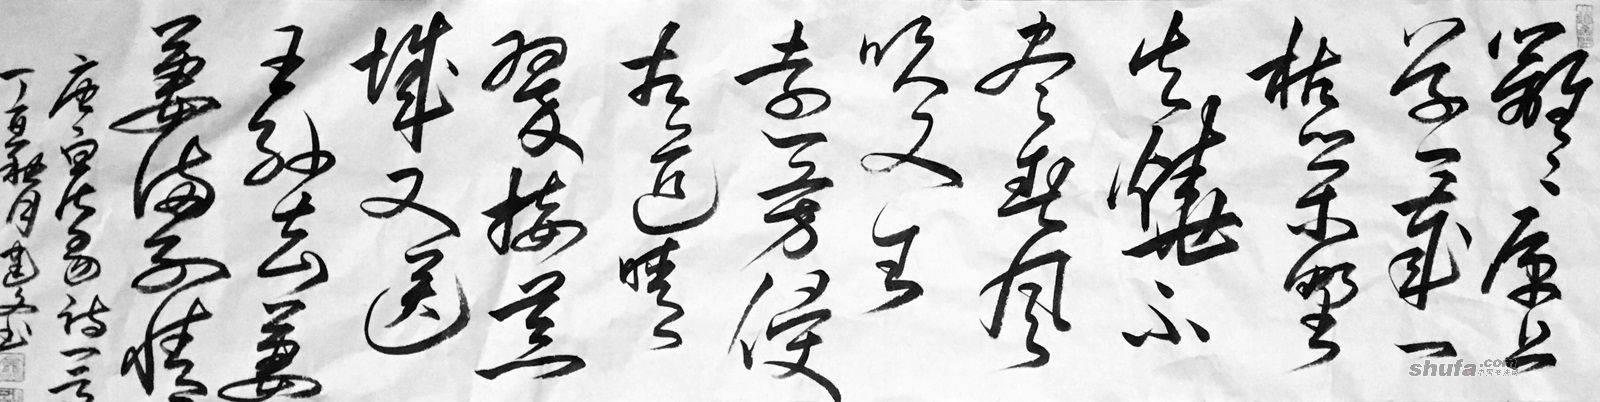 離離原上
草一歲一
枯榮野
火燒不
盡春風
吹又生
遠芳侵
古道晴
翠接荒
城又送
王孫去萋
萋满别情
唐白居易詩一首
丁酉秋月
shufa.com